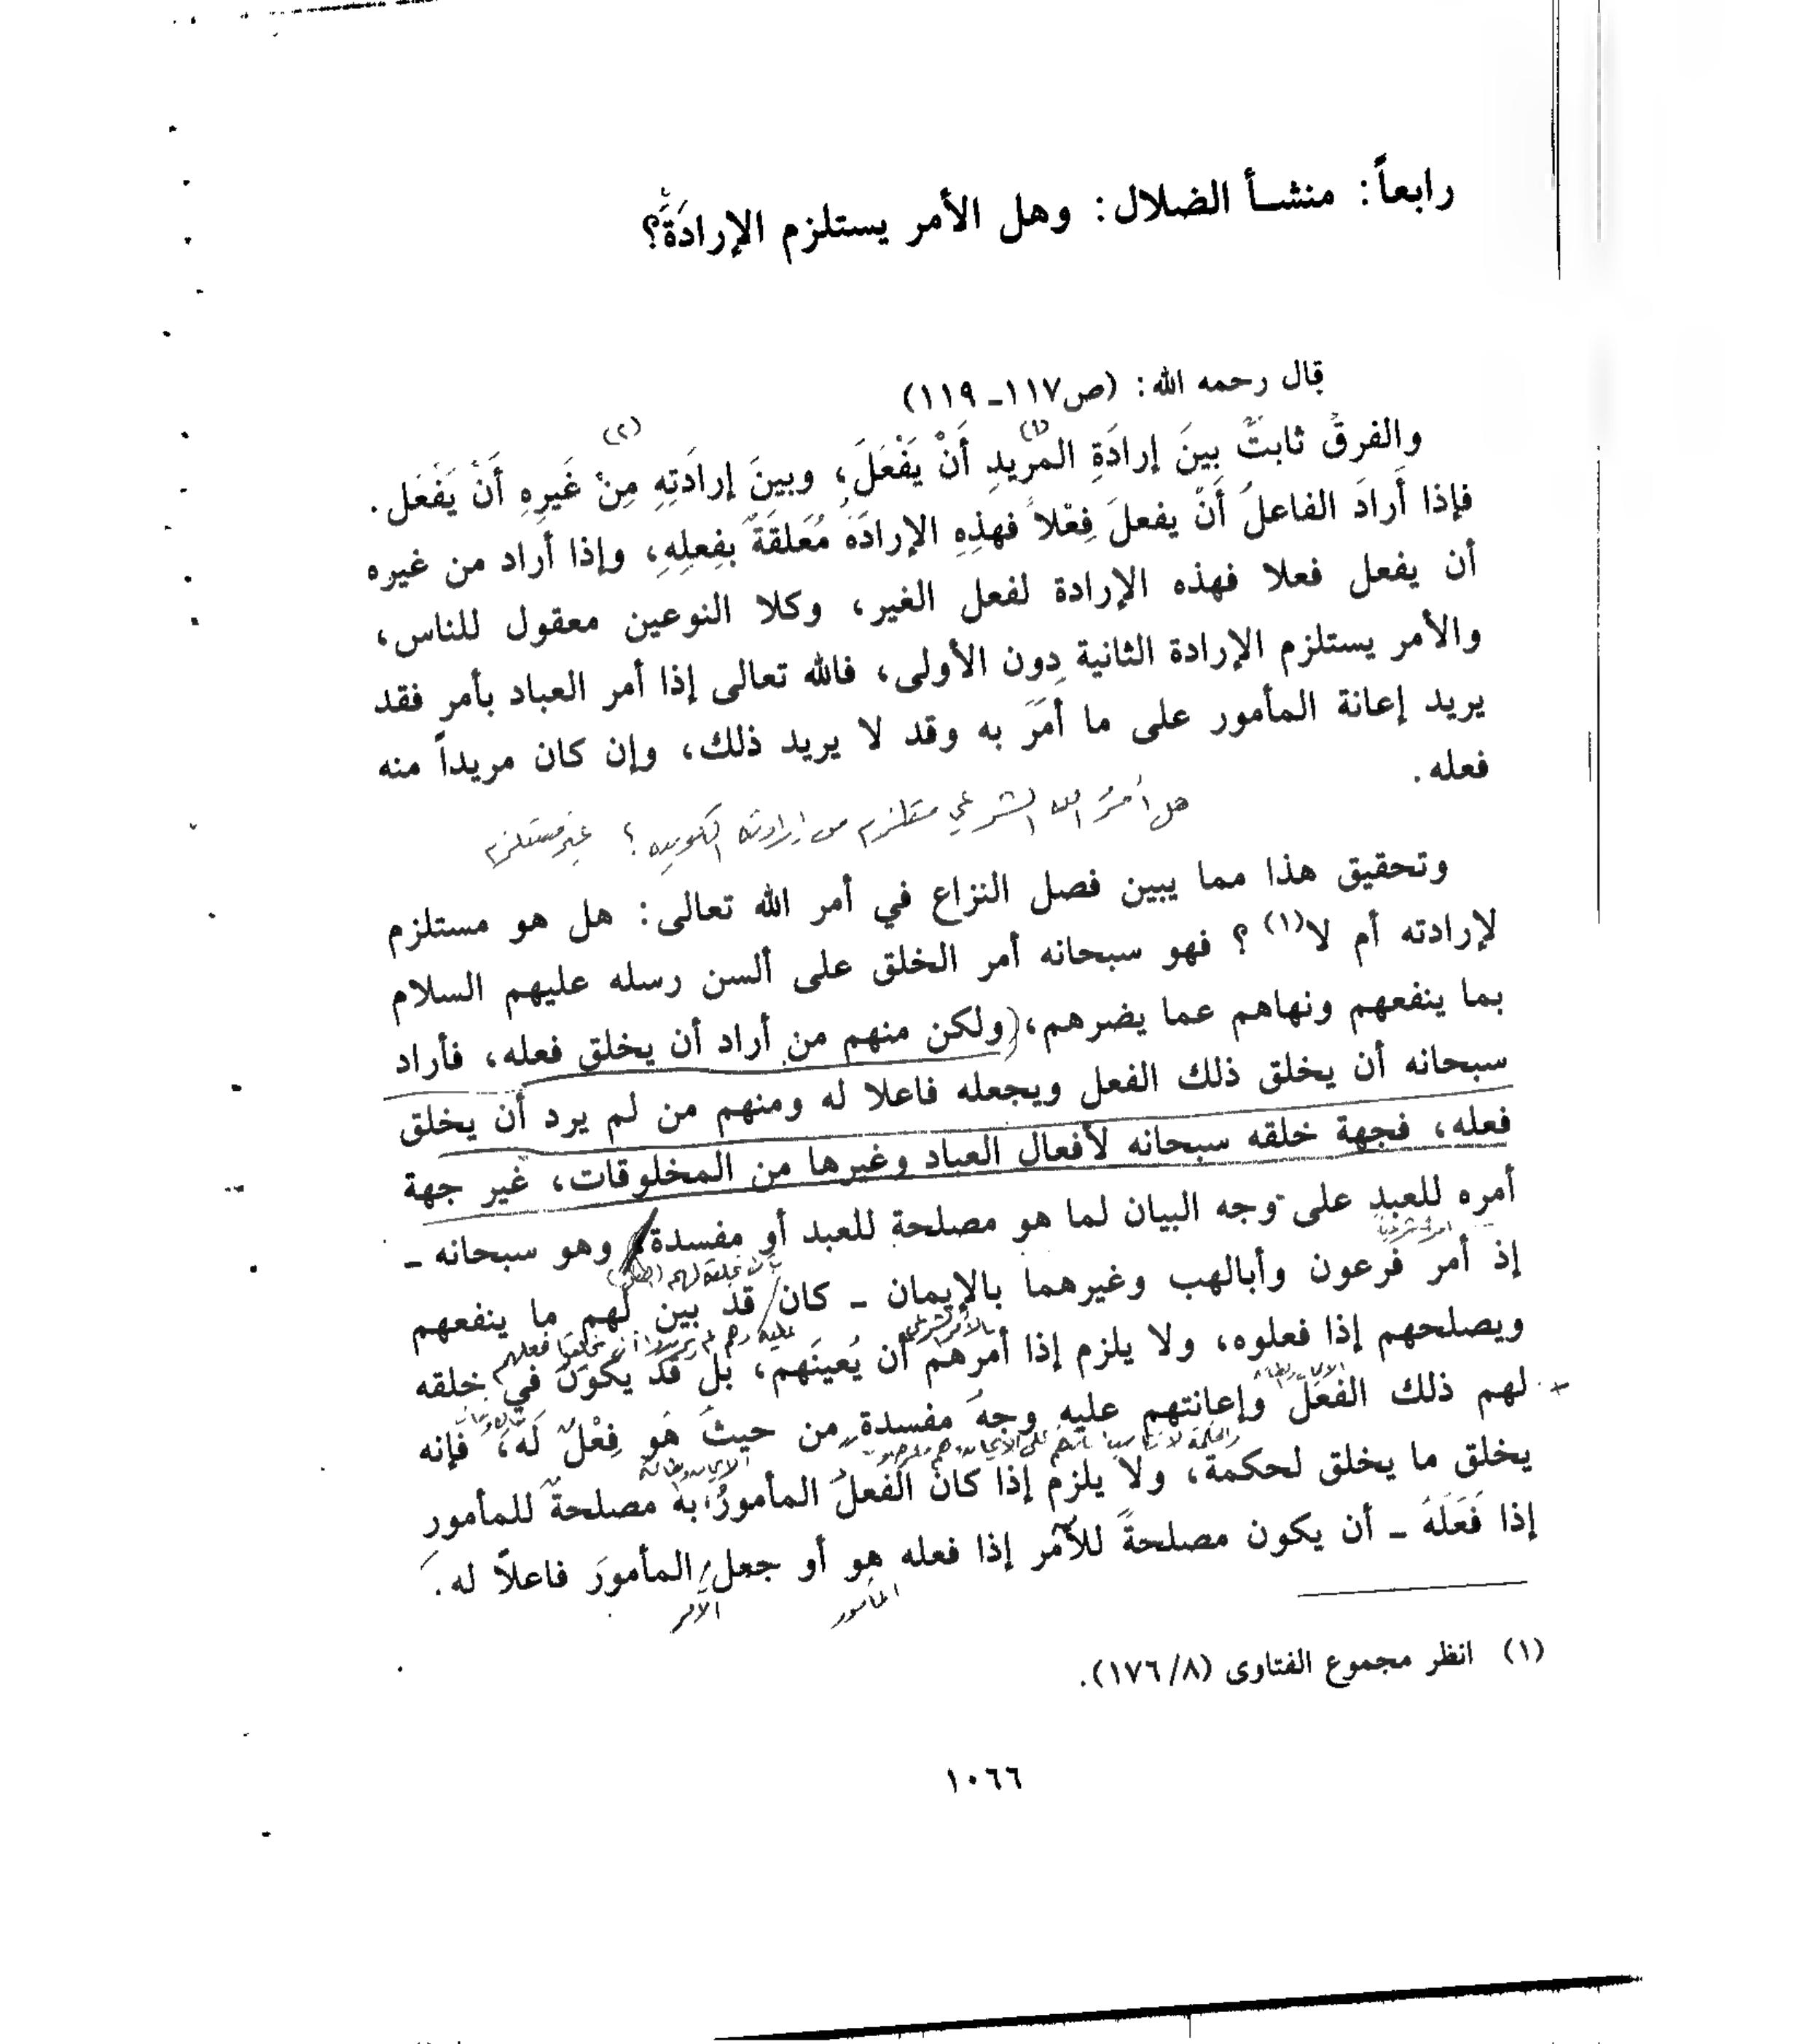 رابعاً: منشأ الضلال: وهل الأمر يستلزم الإرادَةَ؟
قال رحمه الله: (ص١١٧ـ ١١٩)
(١) (٢)
والفرقُ ثابتٌ بينَ إرادَةِ المُريدِ أَنْ يَفْعَلَ، وبينَ إرادَتِهِ مِنْ غَيرِهِ أَنْ يَفْعَل.
فإذا أَرادَ الفاعلُ أَنْ يفعلَ فِعْلاً فهذِهِ الإرادَةُ مُعَلقَةٌ بِفِعلِهِ، وإذا أراد من غيره
أن يفعل فعلا فهذه الإرادة لفعل الغير، وكلا النوعين معقول للناس،
والأمر يستلزم الإرادة الثانية دون الأولى، فالله تعالى إذا أمر العباد بأمر فقد
يريد إعانة المأمور على ما أَمَرَ به وقد لا يريد ذلك، وإن كان مريداً منه
فعله.
هل أمرُ الله الشرعي مستلزم من إرادته الكونية؟ غير مستلزم
وتحقيق هذا مما يبين فصل النزاع في أمر الله تعالى: هل هو مستلزم
لإرادته أم لا(١)؟ فهو سبحانه أمر الخلق على ألسن رسله عليهم السلام
بما ينفعهم ونهاهم عما يضرهم، (ولكن منهم من أراد أن يخلق فعله، فأراد
سبحانه أن يخلق ذلك الفعل ويجعله فاعلا له ومنهم من لم يرد أن يخلق
فعله، فجهة خلقه سبحانه لأفعال العباد وغيرها من المخلوقات، غير جهة
أمره للعبد على وجه البيان لما هو مصلحة للعبد أو مفسدة، وهو سبحانه ـ
أمراً شرعياً
إذ أمر فرعون وأبالهب وغيرهما بالإيمان ـ كان قد بين لهم ما ينفعهم
بالأمر الشرعي
ويصلحهم إذا فعلوه، ولا يلزم إذا أمرهم أن يُعينَهم، بل قد يكون في خلقه
لهم ذلك الفعل وإعانتهم عليه وجهُ مفسدةٍ من حيثُ هُو فِعْلٌ لَه، فإنه
يخلق ما يخلق لحكمة، ولا يلزم إذا كان الفعلُ المأمورُ به مصلحةً للمأمورِ
إذا فَعَلَهُ ـ أن يكون مصلحةً للآمر إذا فعله هو أو جعل المأمورَ فاعلاً له.
المأمور
الآمر
(١) انظر مجموع الفتاوى (١٧٦/٨).
١٠٦٦